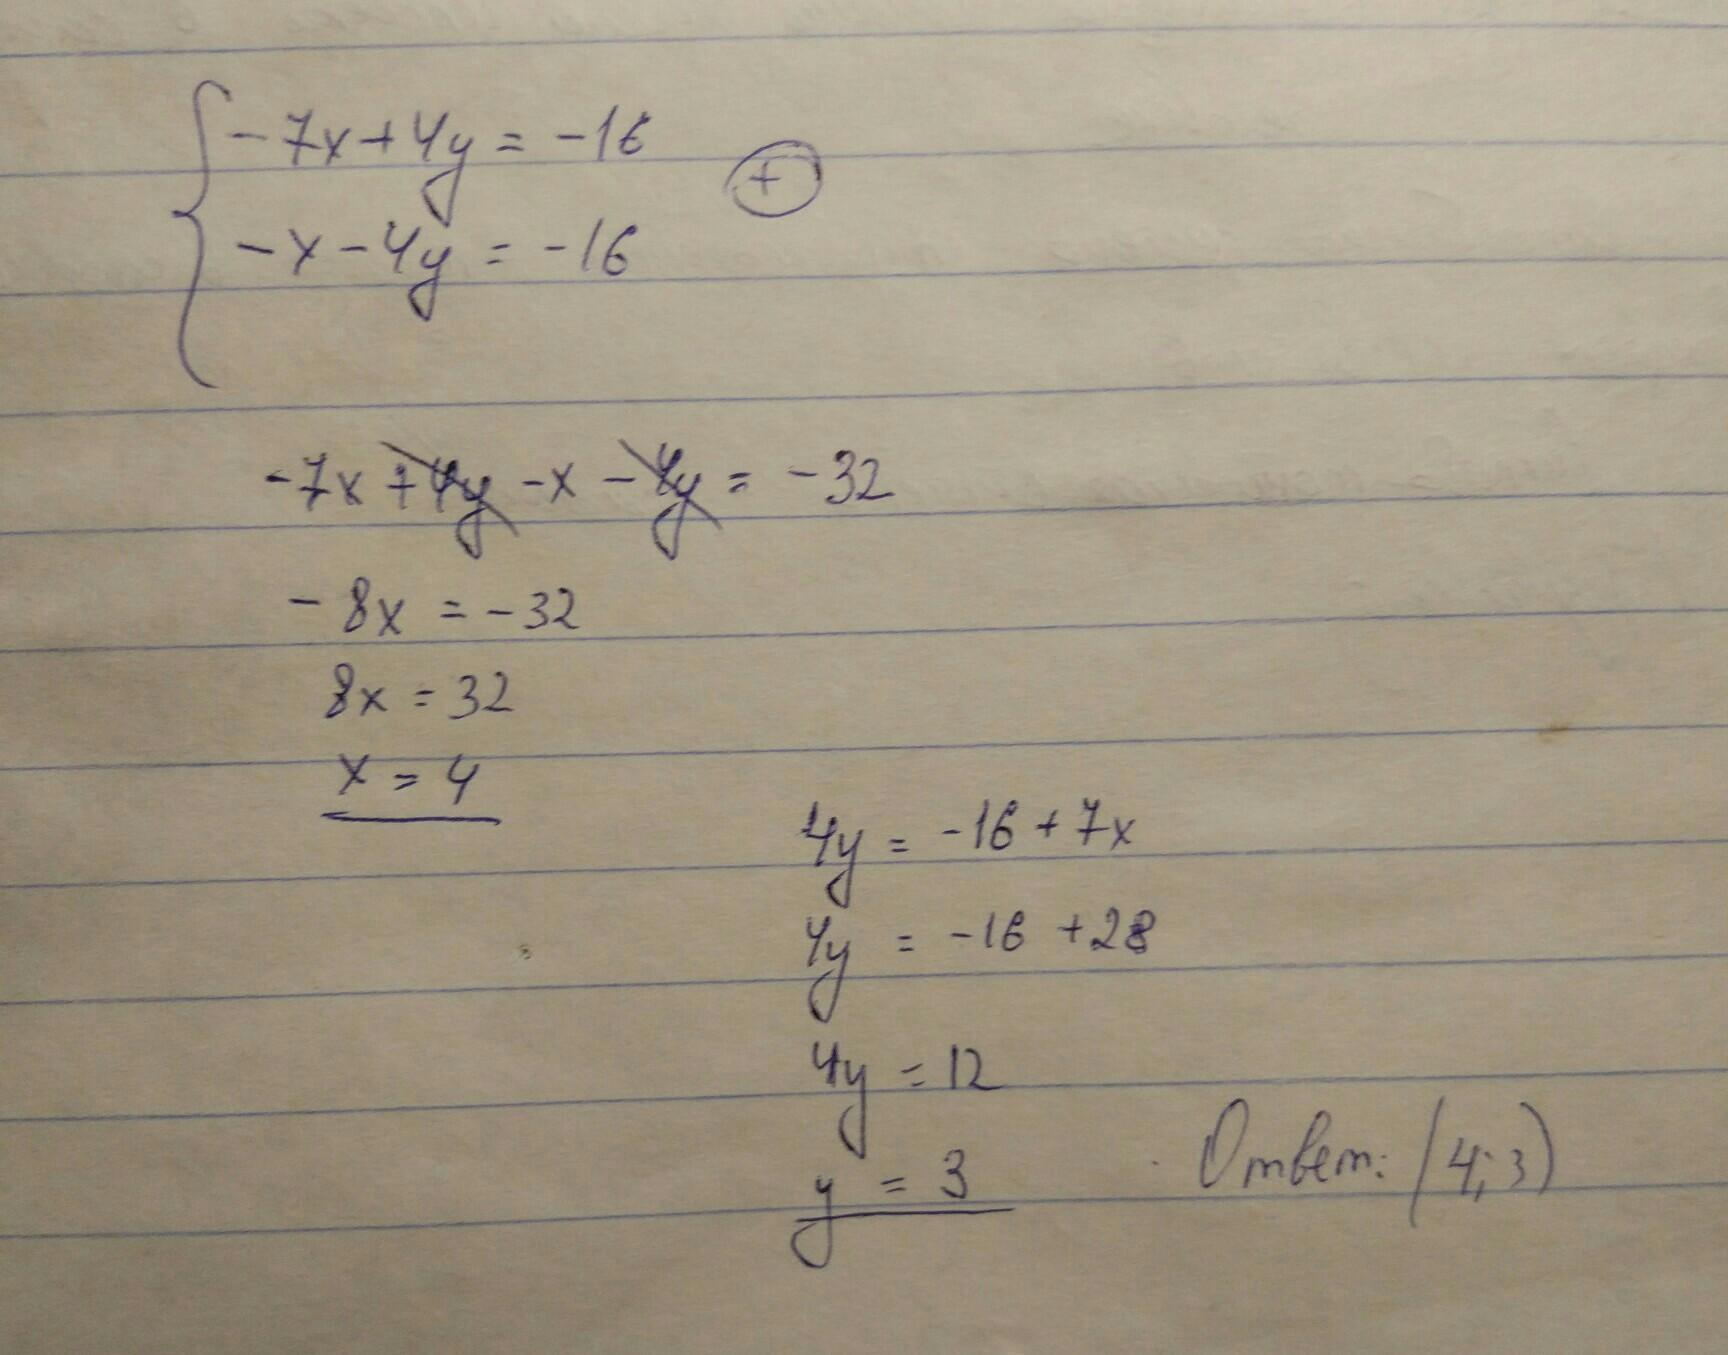 -7x+4y = -16
+
-x-4y = -16
-7x +4y -x -4y = -32
-8x = -32
8x = 32
x = 4
4y = -16 + 7x
4y = -16 +28
4y = 12
y = 3
Ответ: (4;3)